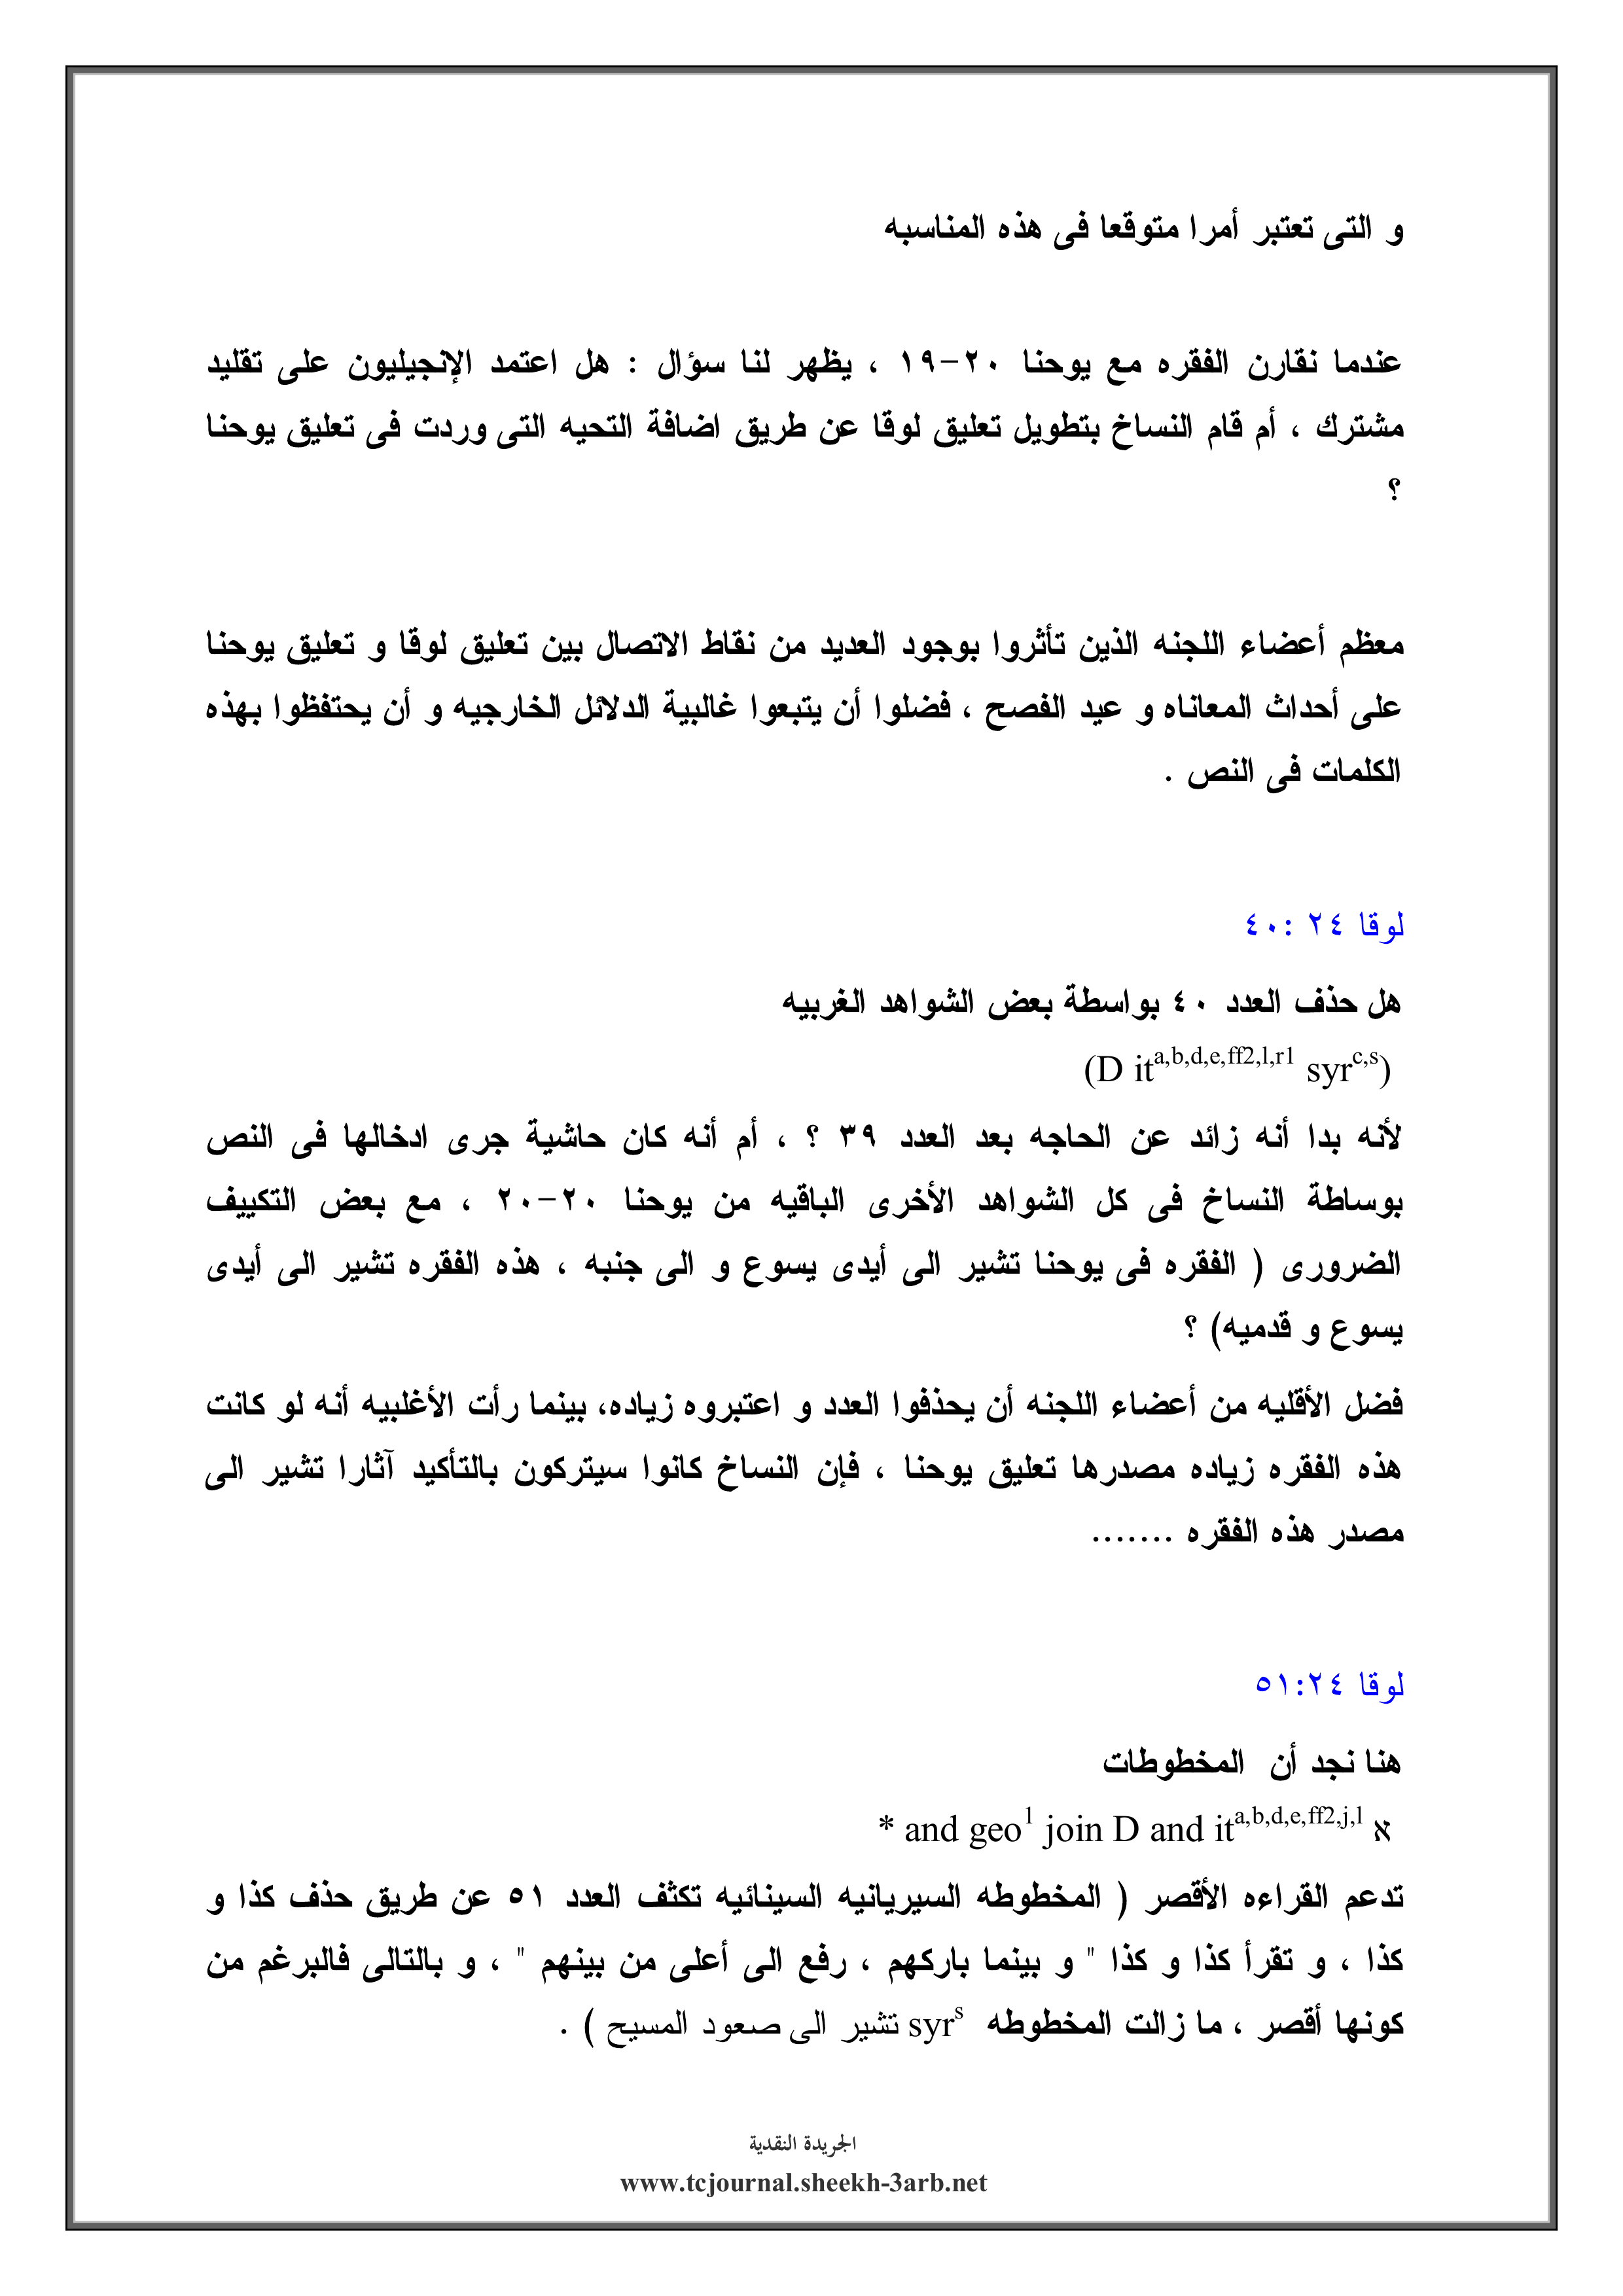 و التى تعتبر أمرا متوقعا فى هذه المناسبه
عندما نقارن الفقره مع يوحنا ٢٠-١٩ ، يظهر لنا سؤال : هل اعتمد الإنجيليون على تقليد
مشترك ، أم قام النساخ بتطويل تعليق لوقا عن طريق اضافة التحيه التى وردت فى تعليق يوحنا
؟
معظم أعضاء اللجنه الذين تأثروا بوجود العديد من نقاط الاتصال بين تعليق لوقا و تعليق يوحنا
على أحداث المعاناه و عيد الفصح ، فضلوا أن يتبعوا غالبية الدلائل الخارجيه و أن يحتفظوا بهذه
الكلمات فى النص .
لوقا ٢٤ :٤٠
هل حذف العدد ٤٠ بواسطة بعض الشواهد الغربيه
(D it^a,b,d,e,ff2,l,r1 syr^c,s)
لأنه بدا أنه زائد عن الحاجه بعد العدد ٣٩ ؟ ، أم أنه كان حاشية جرى ادخالها فى النص
بوساطة النساخ فى كل الشواهد الأخرى الباقيه من يوحنا ٢٠-٢٠ ، مع بعض التكييف
الضرورى ( الفقره فى يوحنا تشير الى أيدى يسوع و الى جنبه ، هذه الفقره تشير الى أيدى
يسوع و قدميه) ؟
فضل الأقليه من أعضاء اللجنه أن يحذفوا العدد و اعتبروه زياده، بينما رأت الأغلبيه أنه لو كانت
هذه الفقره زياده مصدرها تعليق يوحنا ، فإن النساخ كانوا سيتركون بالتأكيد آثارا تشير الى
مصدر هذه الفقره .......
لوقا ٥١:٢٤
هنا نجد أن المخطوطات
א * and geo^1 join D and it^a,b,d,e,ff2,j,l
تدعم القراءه الأقصر ( المخطوطه السيريانيه السينائيه تكثف العدد ٥١ عن طريق حذف كذا و
كذا ، و تقرأ كذا و كذا " و بينما باركهم ، رفع الى أعلى من بينهم " ، و بالتالى فالبرغم من
كونها أقصر ، ما زالت المخطوطه syr^s تشير الى صعود المسيح ) .
الجريدة النقدية
www.tcjournal.sheekh-3arb.net